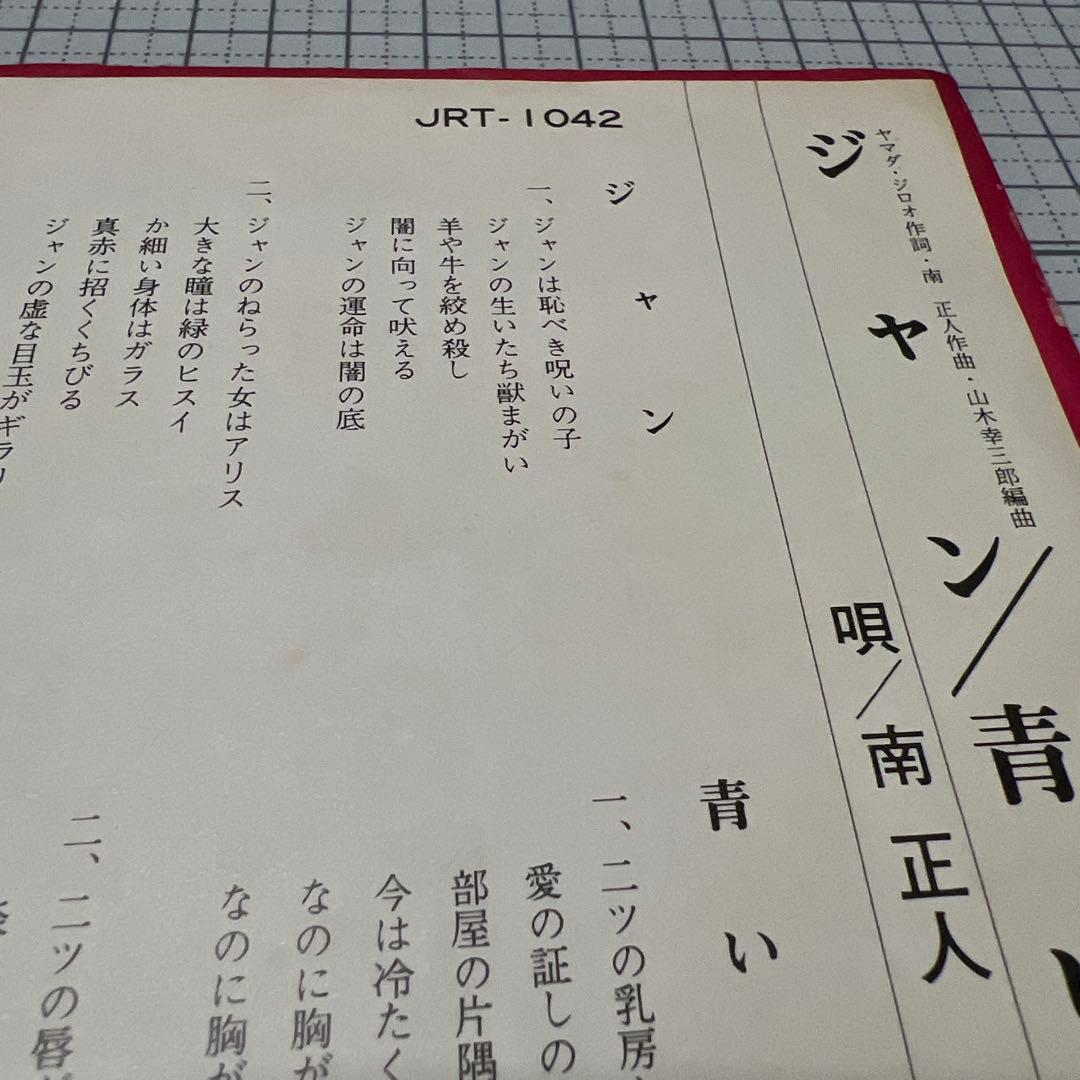 JRT-1042
ヤマダ・ジロオ作詞・南 正人作曲・山木幸三郎編曲
ジャン/青い
唄/南 正人
ジャン
一、ジャンは恥べき呪いの子
ジャンの生いたち獣まがい
羊や牛を絞め殺し
闇に向って吠える
ジャンの運命は闇の底
二、ジャンのねらった女はアリス
大きな瞳は緑のヒスイ
か細い身体はガラス
真赤に招くくちびる
ジャンの虚な目玉がギラリ
青い
一、二ツの乳房
愛の証しの
部屋の片隅
今は冷たく
なのに胸が
なのに胸が
二、二ツの唇